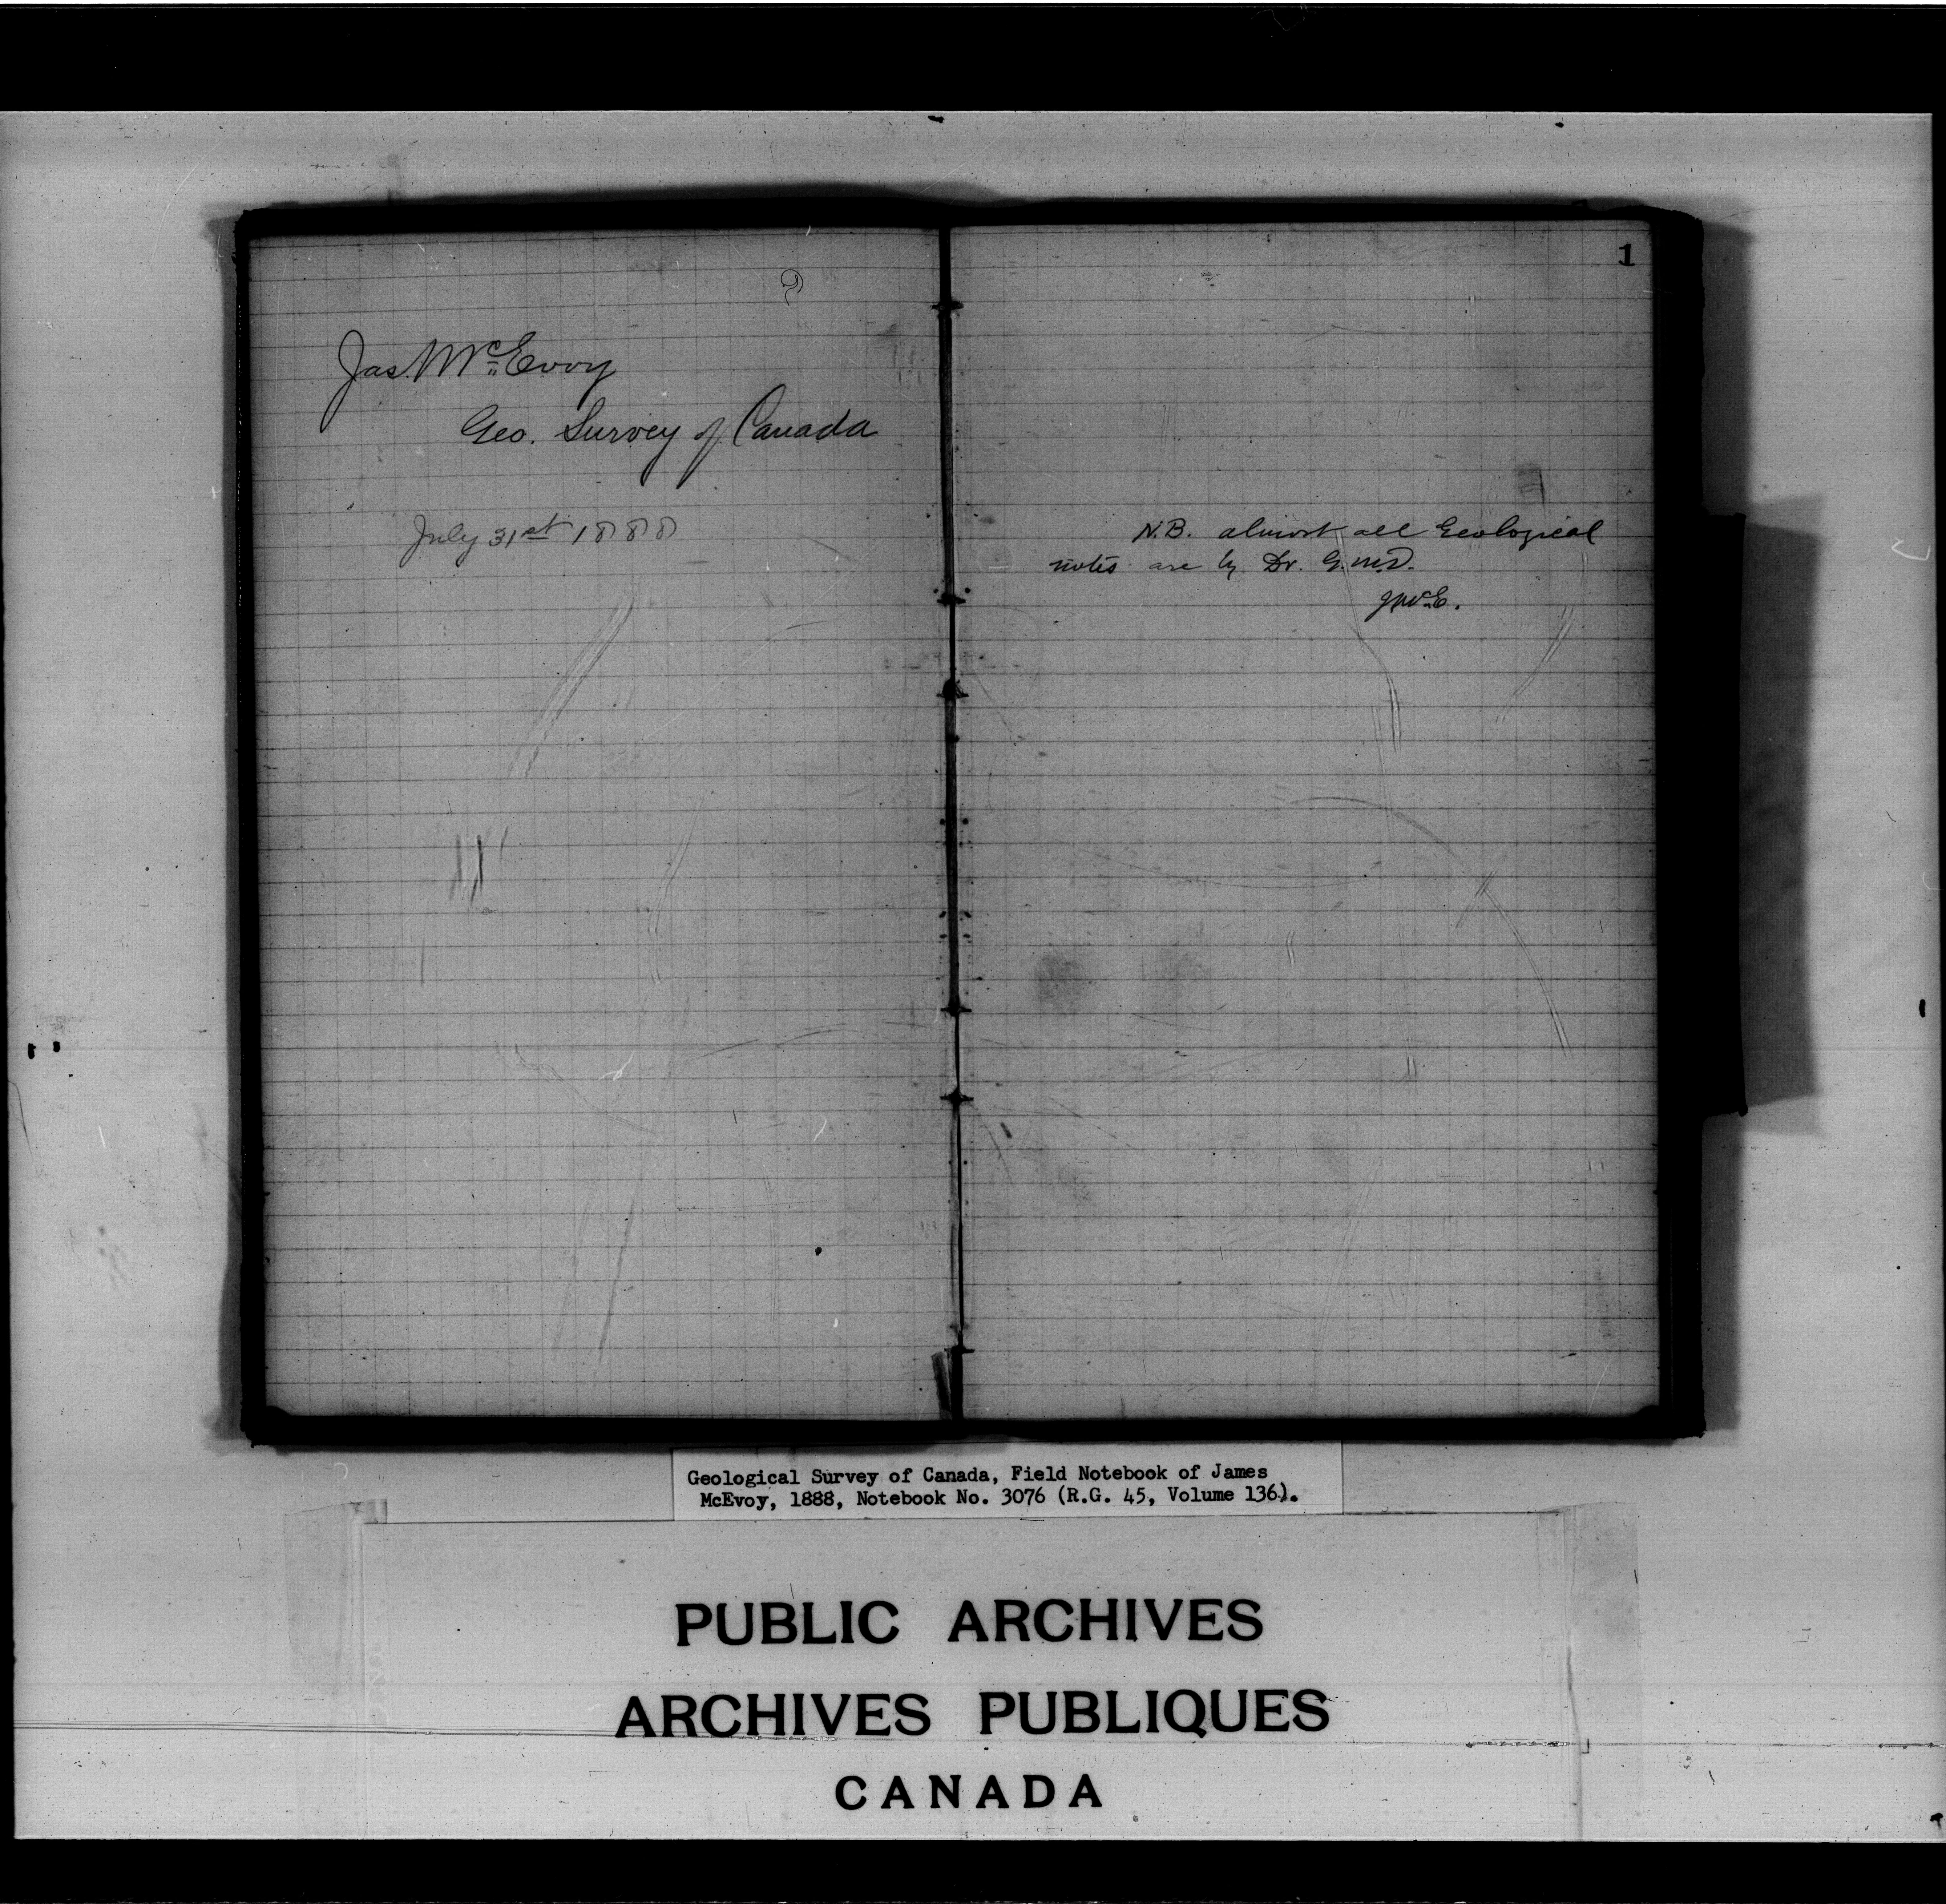 Jas. McEvoy
Geo. Survey of Canada
July 31st 1888
1
N.B. almost all Geological
notes are by Dr. G.M.D.
JMcE.
Geological Survey of Canada, Field Notebook of James
McEvoy, 1888, Notebook No. 3076 (R.G. 45, Volume 136).
PUBLIC ARCHIVES
ARCHIVES PUBLIQUES
CANADA